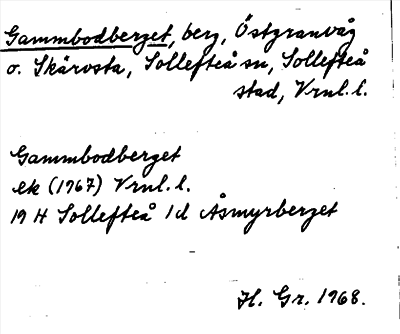 Gammbodberget, berg, Östgranvåg
o. Skärvsta, Sollefteå sn, Sollefteå
stad, Vrnl. l.
Gammbodberget
ek (1967) Vrnl. l.
19 H Sollefteå 1d Åsmyrberget
H. Gr. 1968.